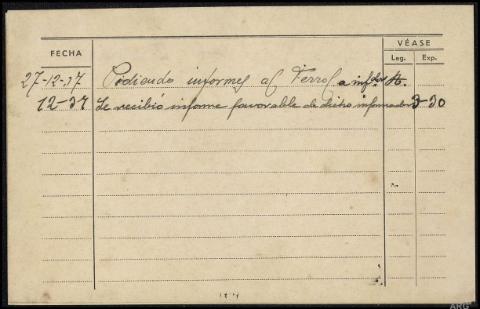 VÉASE
FECHA
Leg. Exp.
27-12-37 Pidiendo informes al Ferrol a infdor
12-37 Se recibió informe favorable de dicho informador 3-30
ARG